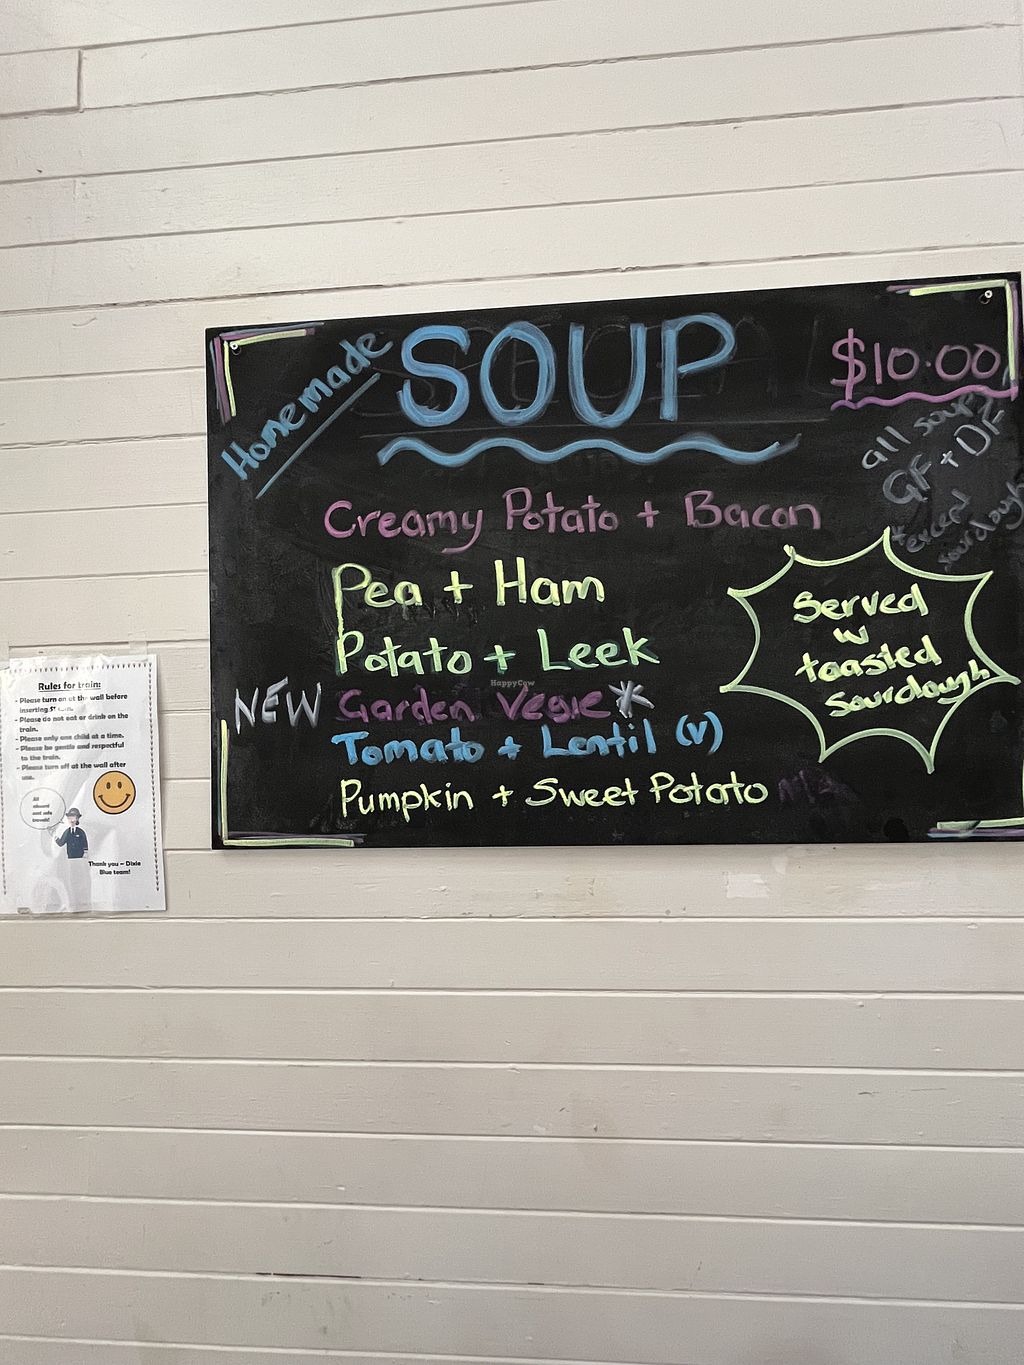 Homemade
SOUP
$10.00
all soups
GF + DF
*except
sourdough
Creamy Potato + Bacon
Pea + Ham
Potato + Leek
NEW Garden Vegie *
Tomato + Lentil (v)
Pumpkin + Sweet Potato
Served
w
toasted
Sourdough
HappyCow
Rules for train:
- Please turn on at the wall before
inserting
- Please do not eat or drink on the
train.
- Please only one child at a time.
- Please be gentle and respectful
to the train.
- Please turn off at the wall after
use.
All
aboard
and safe
travels!
Thank you – Dixie
Blue team!